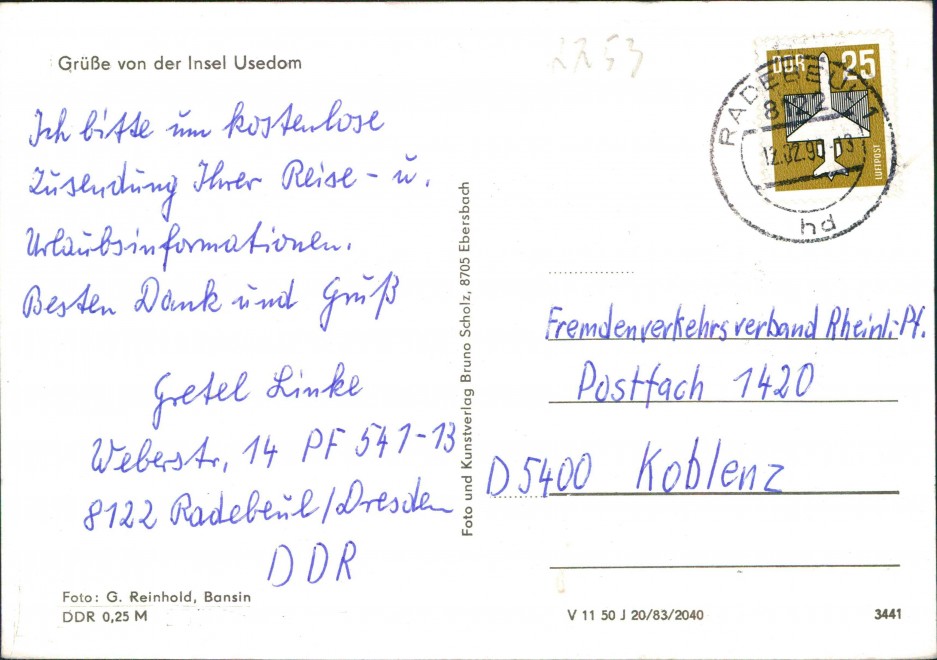 Grüße von der Insel Usedom
Ich bitte um kostenlose
Zusendung Ihrer Reise- u.
Urlaubsinformationen.
Besten Dank und Gruß
Gretel Linke
Weberstr, 14 PF 541-13
8122 Radebeul/Dresden
DDR
Foto: G. Reinhold, Bansin
DDR 0,25 M
Foto und Kunstverlag Bruno Scholz, 8705 Ebersbach
2253
DDR 25
LUFTPOST
RADEBEUL 1
8122
12.02.90-13
hd
Fremdenverkehrsverband Rheinl.-Pf.
Postfach 1420
D 5400 Koblenz
V 11 50 J 20/83/2040
3441